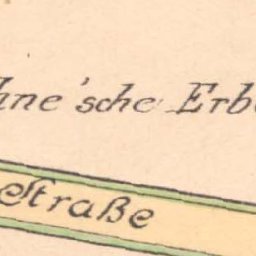 hne'sche Erb
estraße